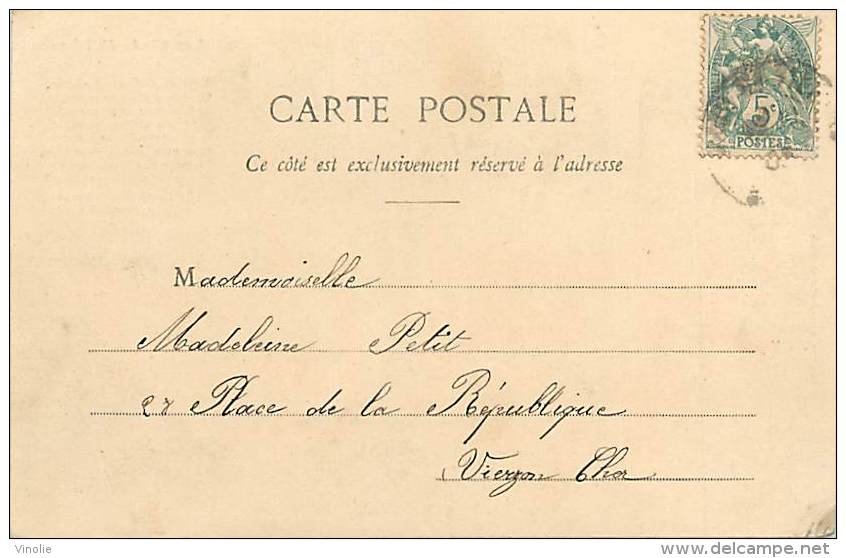 CARTE POSTALE
5c
POSTES
Ce côté est exclusivement réservé à l'adresse
Mademoiselle
Madeleine Petit
27 Place de la République
Vierzon Cher
Vinolie
www.delcampe.net